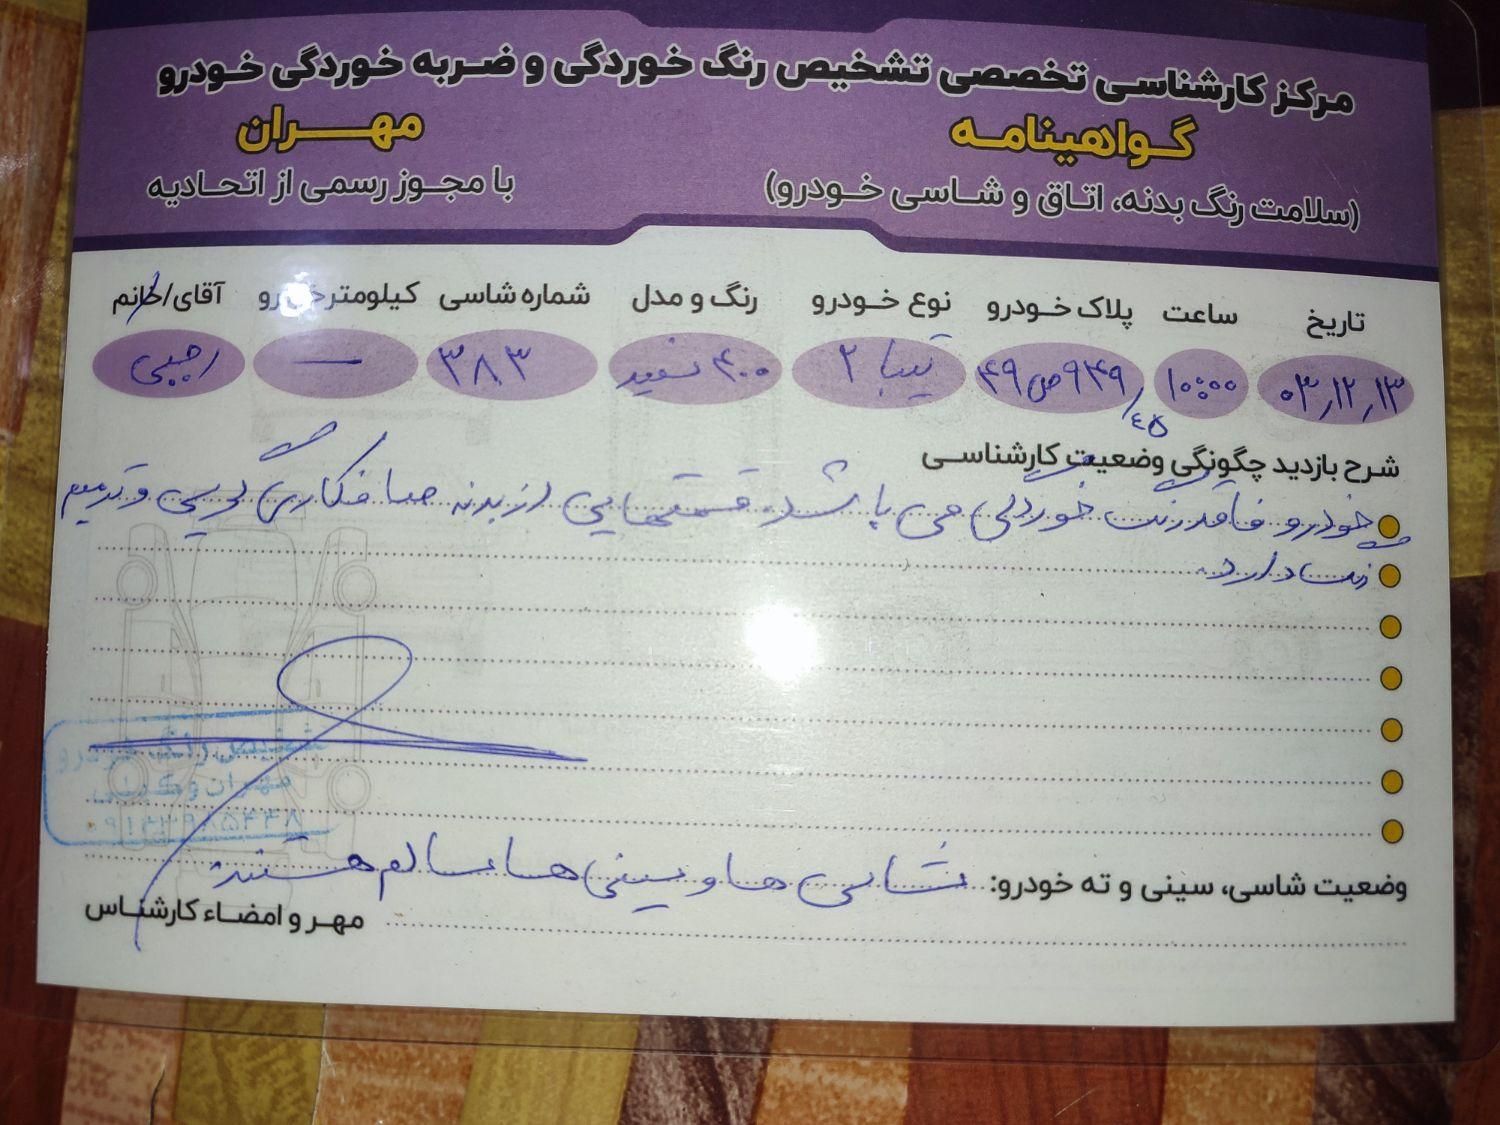 مرکز کارشناسی تخصصی تشخیص رنگ خوردگی و ضربه خوردگی خودرو
گواهینامه مهران
(سلامت رنگ بدنه، اتاق و شاسی خودرو) با مجوز رسمی از اتحادیه
تاریخ ساعت پلاک خودرو نوع خودرو رنگ و مدل شماره شاسی کیلومتر خودرو آقای/خانم
۰۳٫۱۲٫۱۳ ۱۰:۰۰ ۹۴۹ص۴۹/۴۵ تیبا ۲ ۴۰۰ سفید ۳۸۳ — رجبی
شرح بازدید چگونگی وضعیت کارشناسی
خودرو فاقد رنگ خوردگی می باشد. قسمتهایی از بدنه صافکاری لیسی و ترمیم
رنگ دارد.
تشخیص رنگ خودرو
مهران وکیلی
وضعیت شاسی، سینی و ته خودرو: شاسی ها و سینی ها سالم هستند.
مهر و امضاء کارشناس